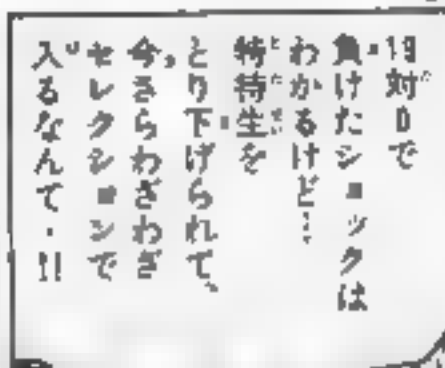 19対0で
負けたショックは
わかるけど…
特待生を
とり下げられて、
今さらわざわざ
セレクションで
入るなんて・!!